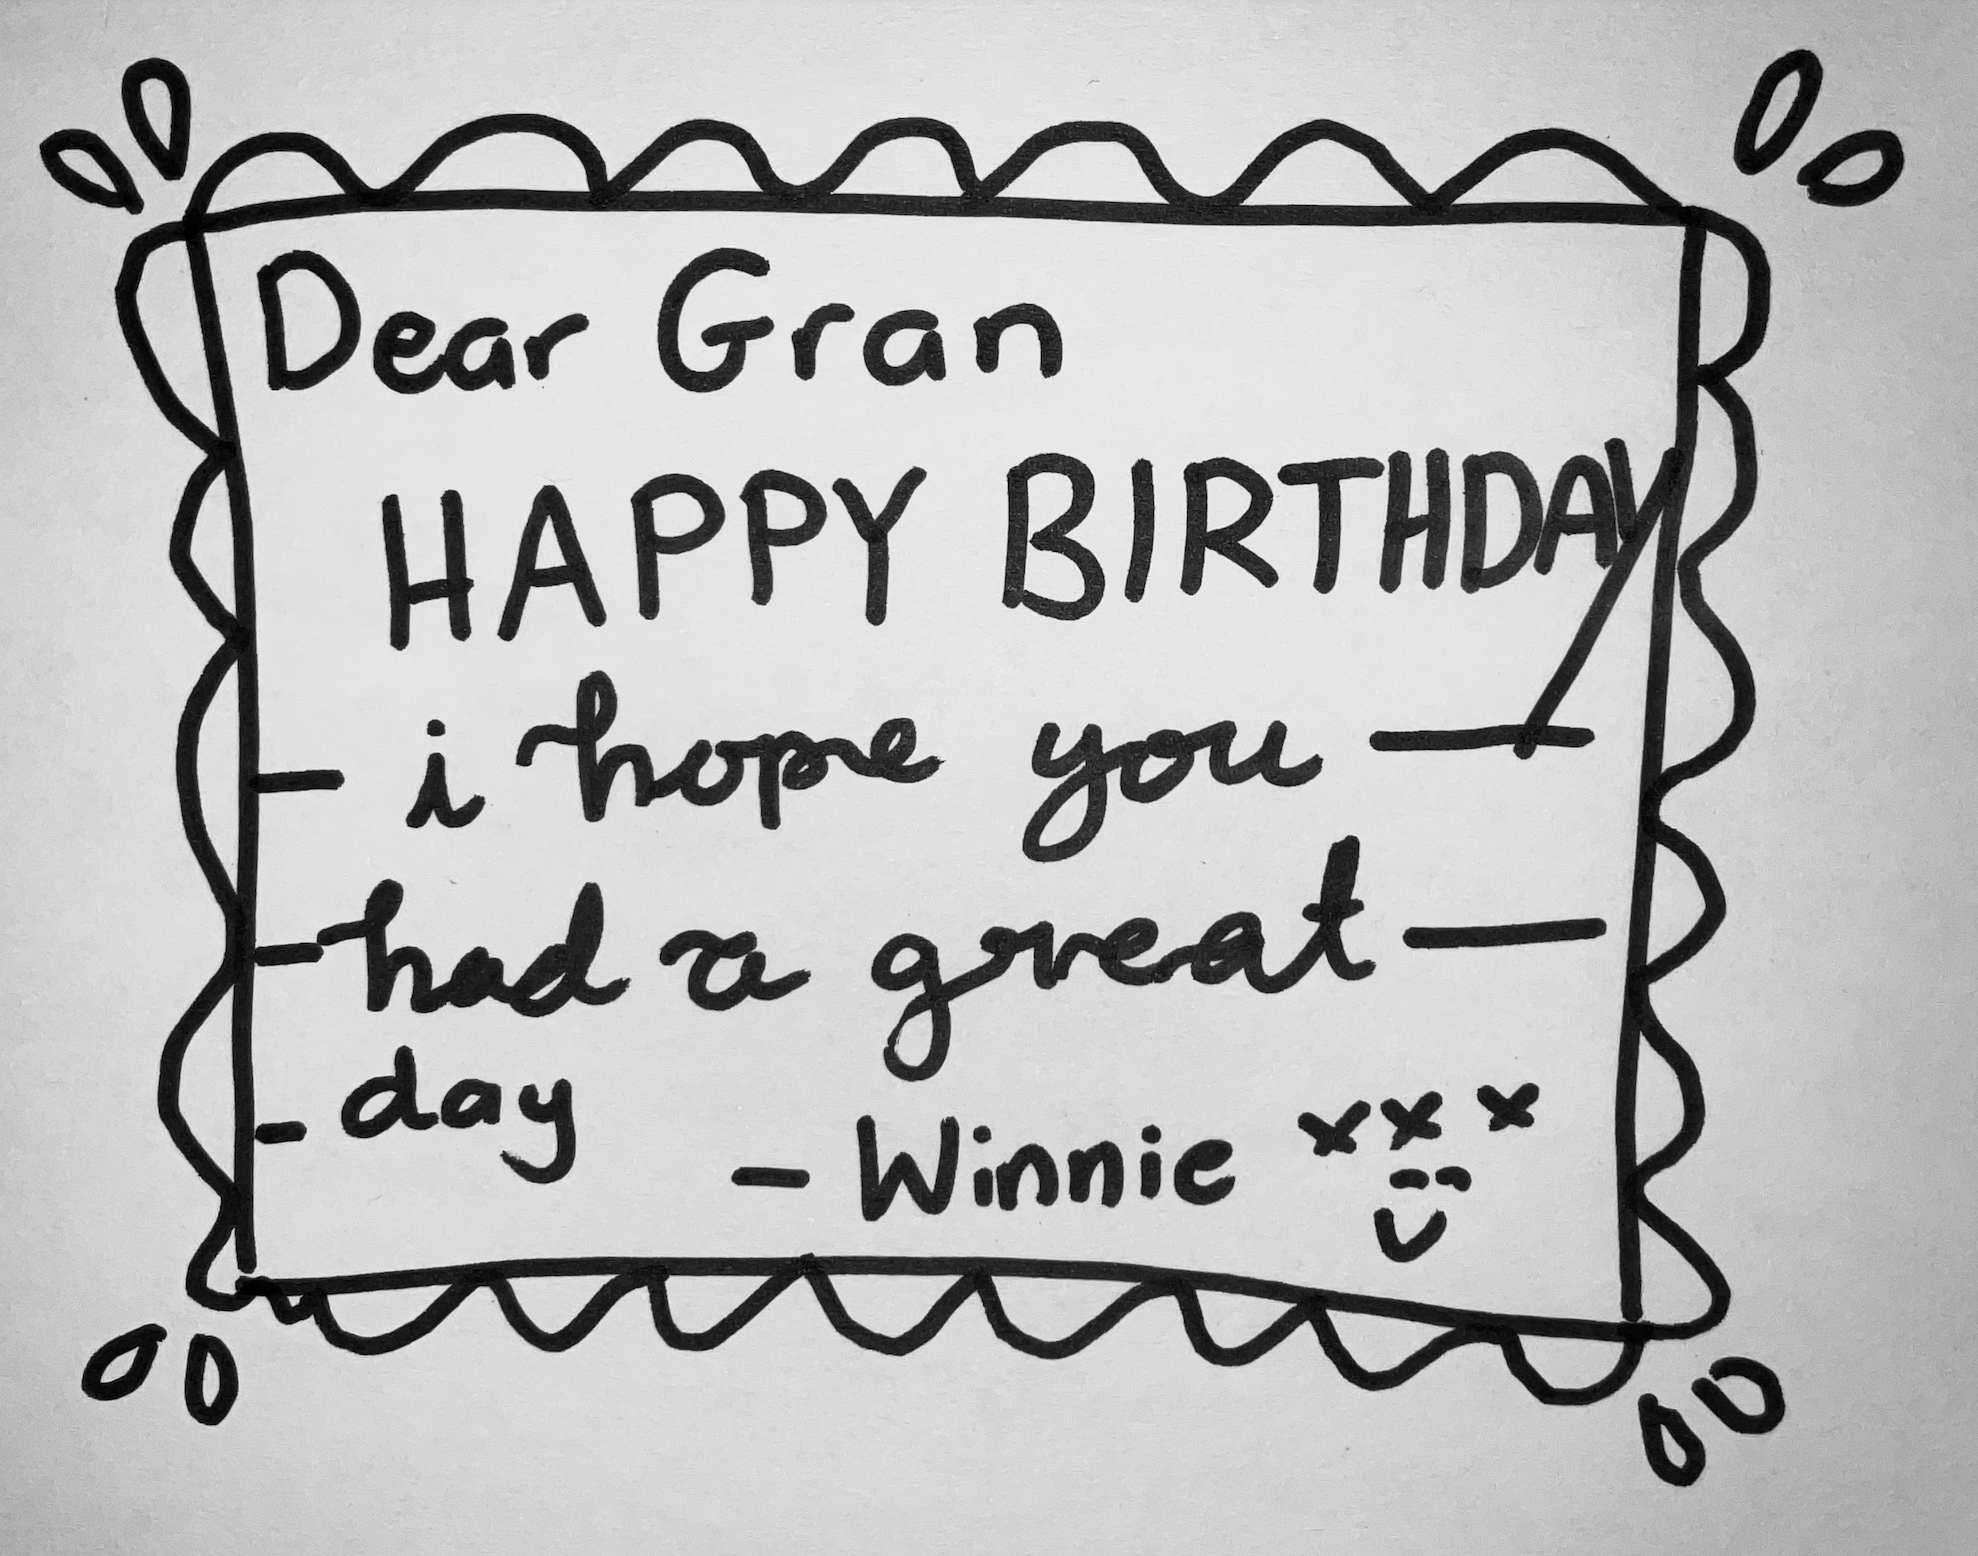 Dear Gran
HAPPY BIRTHDAY
- i hope you -
- had a great -
- day
- Winnie xxx